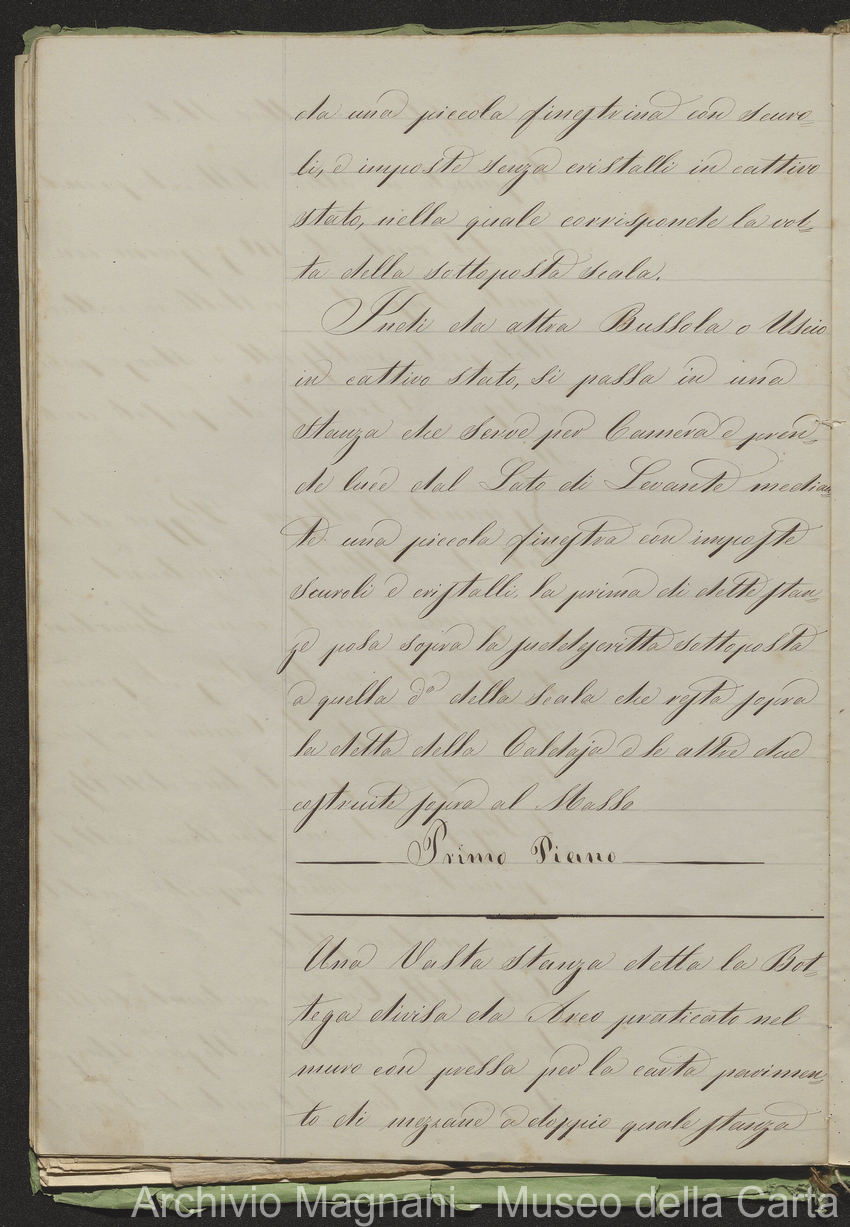 da una piccola finestrina con scuro-
li, e imposte senza cristalli in cattivo
stato, nella quale corrisponde la vol=
ta della sottoposta scala.
Indi da altra Bussola o Uscio
in cattivo stato, si passa in una
stanza che serve per Camera e pren=
de luce dal Lato di Levante median
te una piccola finestra con imposte
scuroli e cristalli, la prima di dette stan=
ze posa sopra la suddescritta sottoposta
a quella dª della scala che resta sopra
la detta della Caldaja e le altre due
costruite sopra al Masso
Primo Piano
Una Vasta stanza detta la Bot=
tega divisa da Arco praticato nel
muro con pressa per la carta pavimen=
to di mezzane a doppio quale stanza
Archivio Magnani - Museo della Carta